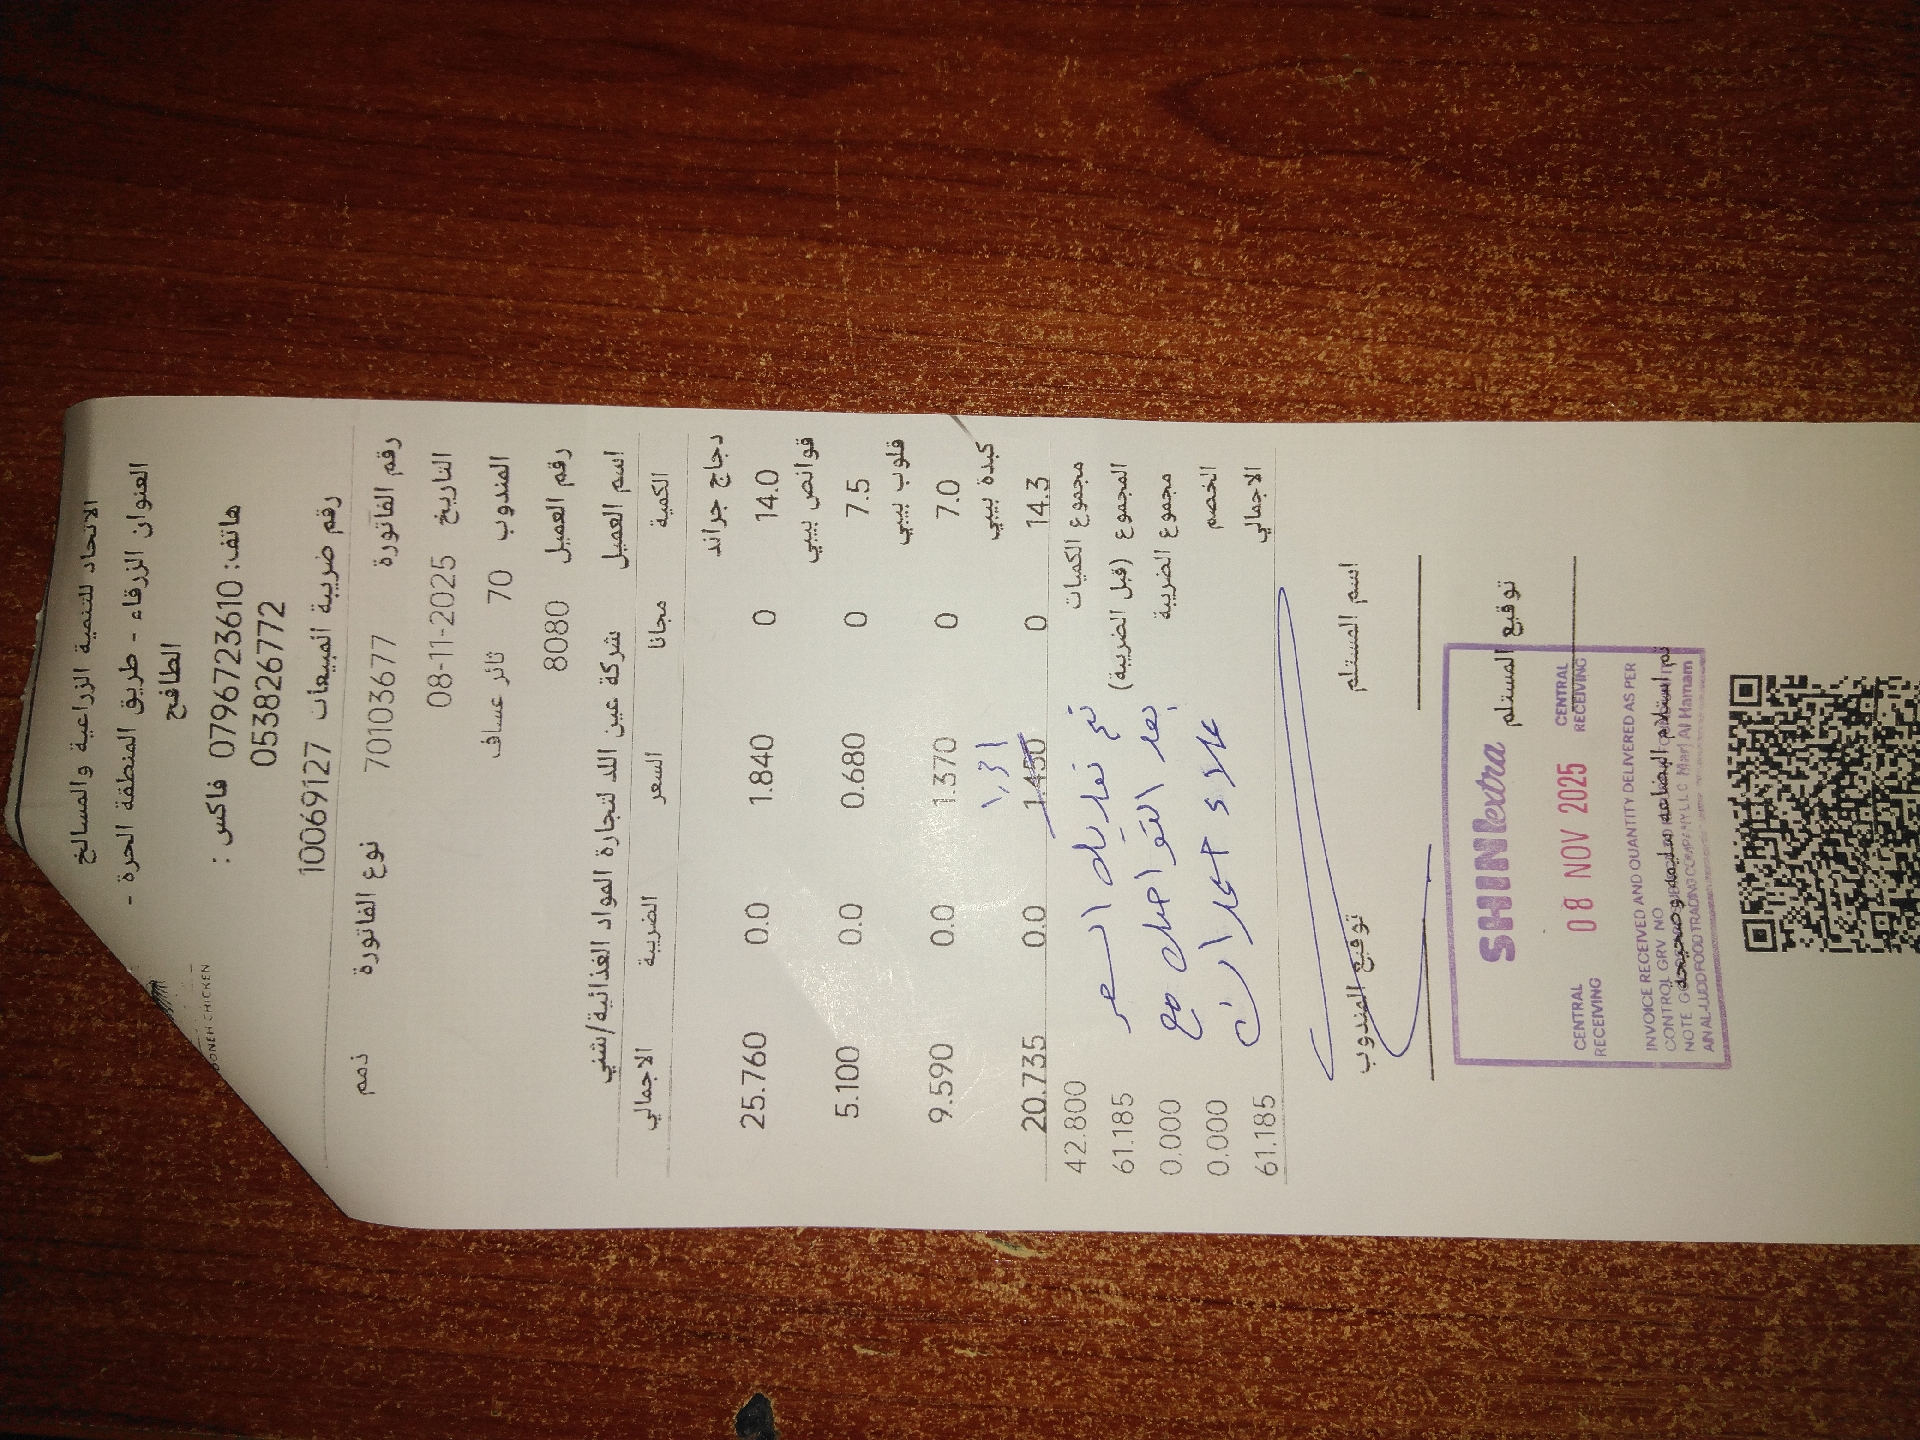 DONEH CHICKEN
الاتحاد للتنمية الزراعية والمسالخ
العنوان الزرقاء - طريق المنطقة الحرة -
الطافح
هاتف: 0796723610 فاكس :
0538826772
رقم ضريبة المبيعات 100691127
رقم الفاتورة 70103677 نوع الفاتورة ذمم
التاريخ 08-11-2025
المندوب 70 ثائر عساف
رقم العميل 8080
اسم العميل شركة عين اللد لتجارة المواد الغذائية/شني
الكمية مجانا السعر الضريبة الاجمالي
دجاج جراند
14.0 0 1.840 0.0 25.760
قوانص بيبي
7.5 0 0.680 0.0 5.100
قلوب بيبي
7.0 0 1.370 0.0 9.590
كبدة بيبي
١,٣١
14.3 0 1.450 0.0 20.735
مجموع الكميات 42.800
المجموع (قبل الضريبة) 61.185
مجموع الضريبة 0.000
الخصم 0.000
الاجمالي 61.185
تم تعديل السعر
بعد التواصل مع
علاء
اسم المستلم توقيع المندوب
توقيع المستلم
SHINIextra
CENTRAL RECEIVING 08 NOV 2025 CENTRAL RECEIVING
INVOICE RECEIVED AND QUANTITY DELIVERED AS PER
CONTROL GRV NO
NOTE
تم استلام البضاعه سليمه وصحيحه
AIN AL-LUDD FOOD TRADING COMPANY LLC Marj Al Hamam